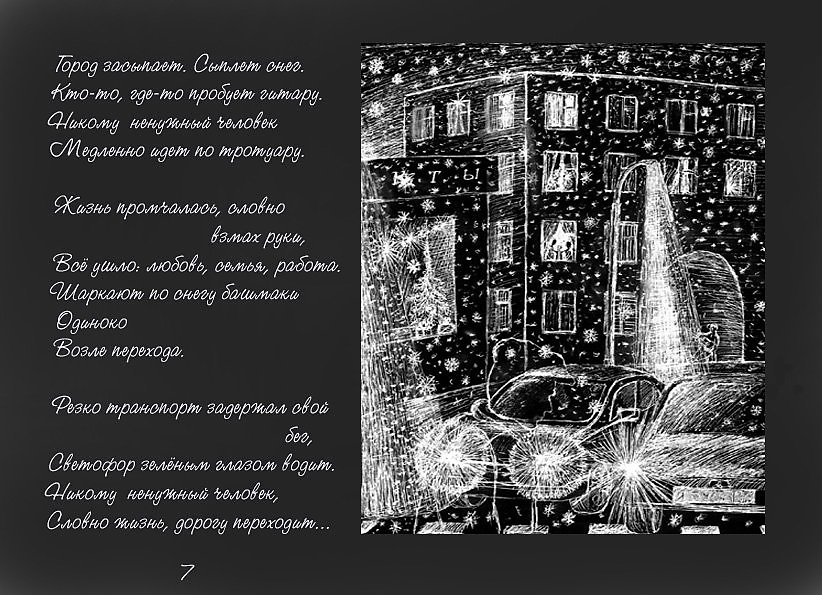 Город засыпает. Сыплет снег.
Кто-то, где-то пробует гитару.
Никому ненужный человек
Медленно идет по тротуару.
Жизнь промчалась, словно
взмах руки,
Всё ушло: любовь, семья, работа.
Шаркают по снегу башмаки
Одиноко
Возле перехода.
Резко транспорт задержал свой
бег,
Светофор зелёным глазом водит.
Никому ненужный человек,
Словно жизнь, дорогу переходит...
7
КТЫ